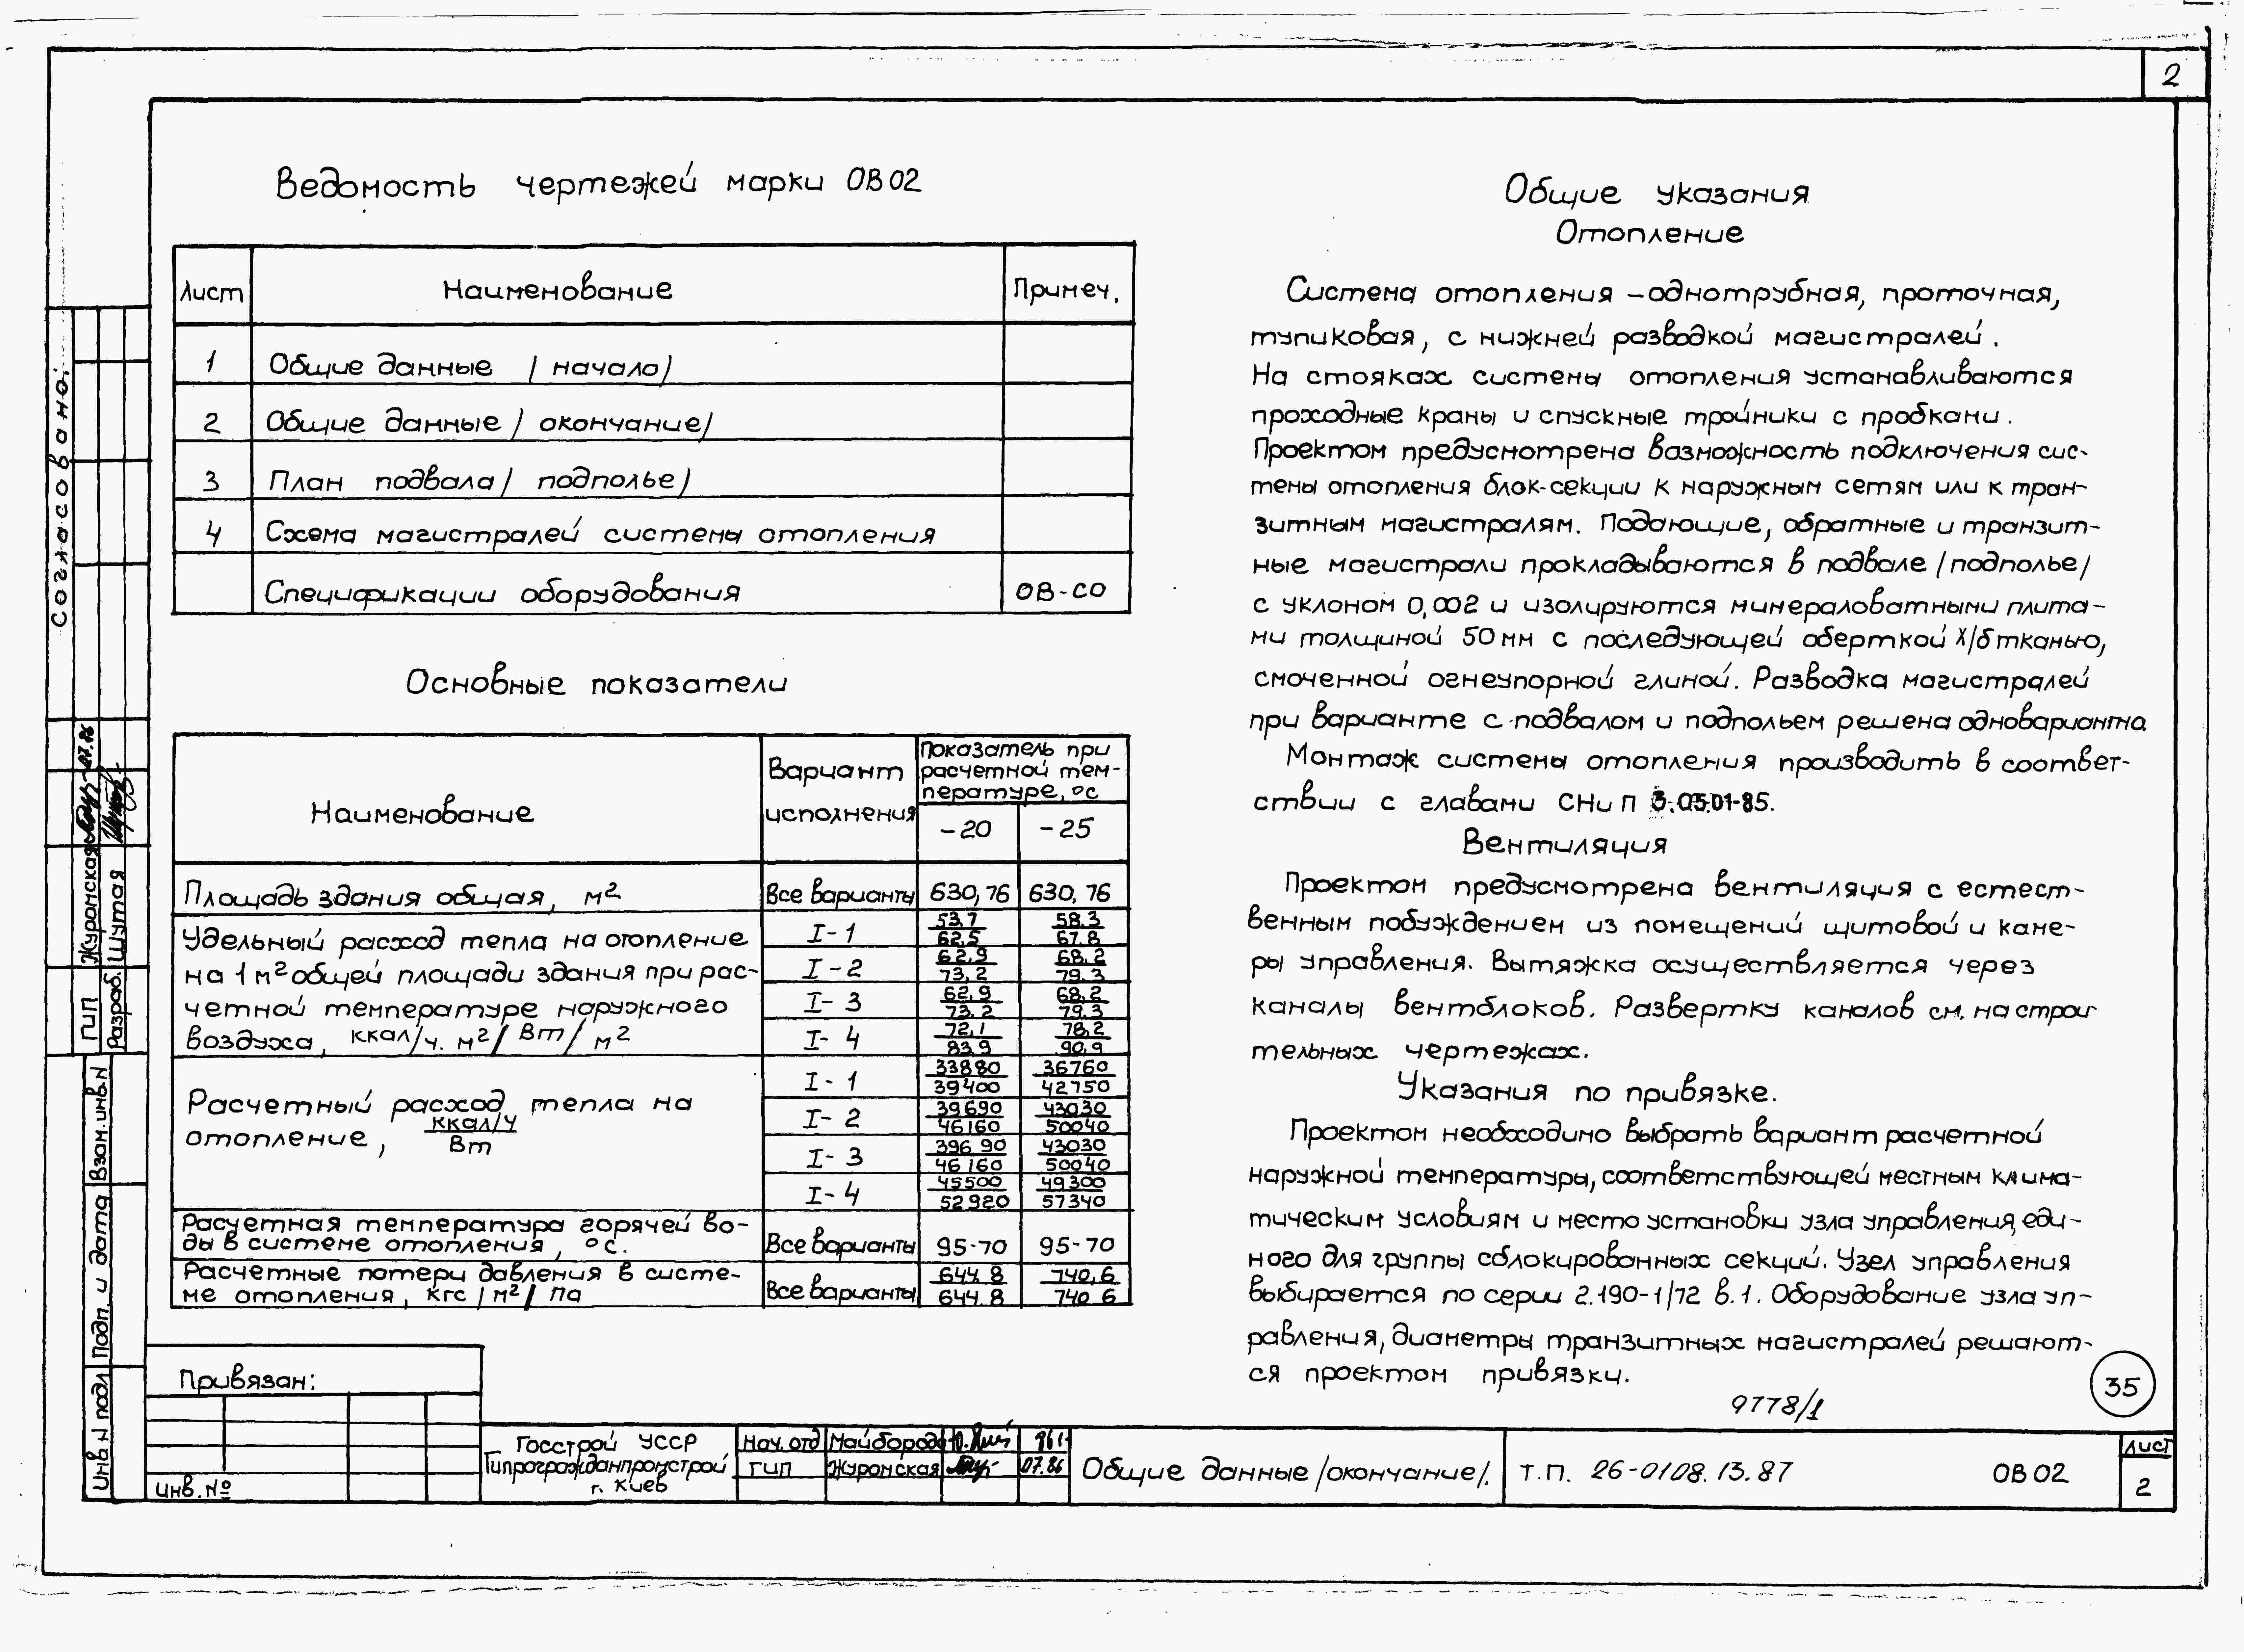 2
Ведомость чертежей марки ОВ02
Лист Наименование Примеч.
1 Общие данные /начало/
2 Общие данные /окончание/
3 План подвала /подполье/
4 Схема магистралей системы отопления
Спецификации оборудования ОВ-СО
Основные показатели
Наименование
Вариант
исполнения
Показатель при
расчетной тем-
пературе, °С
-20 -25
Площадь здания общая, м2 Все варианты 630,76 630,76
Удельный расход тепла на отопление
на 1 м2 общей площади здания при рас-
четной температуре наружного
воздуха, ккал/ч. м2/ Вт/ м2
I-1 53.7 58.3
62.5 67.8
I-2 62,9 68,2
73,2 79.3
I-3 62,9 68,2
73.2 79.3
I-4 72,1 78,2
83,9 90,9
Расчетный расход тепла на
отопление, ккал/ч
Вт
I-1 33880 36760
39400 42750
I-2 39690 43030
46160 50040
I-3 39690 43030
46160 50040
I-4 45500 49300
52920 57340
Расчетная температура горячей во-
ды в системе отопления, °С. Все варианты 95-70 95-70
Расчетные потери давления в систе-
ме отопления, кгс/м2/ Па Все варианты
644.8 740,6
644.8 740 6
Общие указания
Отопление
Система отопления – однотрубная, проточная,
тупиковая, с нижней разводкой магистралей.
На стояках системы отопления устанавливаются
проходные краны и спускные тройники с пробками.
Проектом предусмотрена возможность подключения сис-
темы отопления блок-секции к наружным сетям или к тран-
зитным магистралям. Подающие, обратные и транзит-
ные магистрали прокладываются в подвале /подполье/
с уклоном 0,002 и изолируются минераловатными плита-
ми толщиной 50 мм с последующей оберткой х/б тканью,
смоченной огнеупорной глиной. Разводка магистралей
при варианте с подвалом и подпольем решена одновариантно.
Монтаж системы отопления производить в соответ-
ствии с главами СНиП 3.05.01-85.
Вентиляция
Проектом предусмотрена вентиляция с естест-
венным побуждением из помещений щитовой и каме-
ры управления. Вытяжка осуществляется через
каналы вентблоков. Развертку каналов см. на строи-
тельных чертежах.
Указания по привязке.
Проектом необходимо выбрать вариант расчетной
наружной температуры, соответствующей местным клима-
тическим условиям и место установки узла управления, еди-
ного для группы сблокированных секций. Узел управления
выбирается по серии 2.190-1/72 в.1. Оборудование узла уп-
равления, диаметры транзитных магистралей решают-
ся проектом привязки.
9778/1
35
Согласовано:
ГИП Журомская 07.86
Разраб. Шутая
Взам. инв. N
Подп. и дата
Инв. N подл
Привязан:
Инв. №
Госстрой УССР
Гипрогражданпромстрой
г. Киев
Нач. отд Майборода
ГИП Журомская 07.86
Общие данные /окончание/.
Т.П. 26-0108.13.87 ОВ02
Лист
2